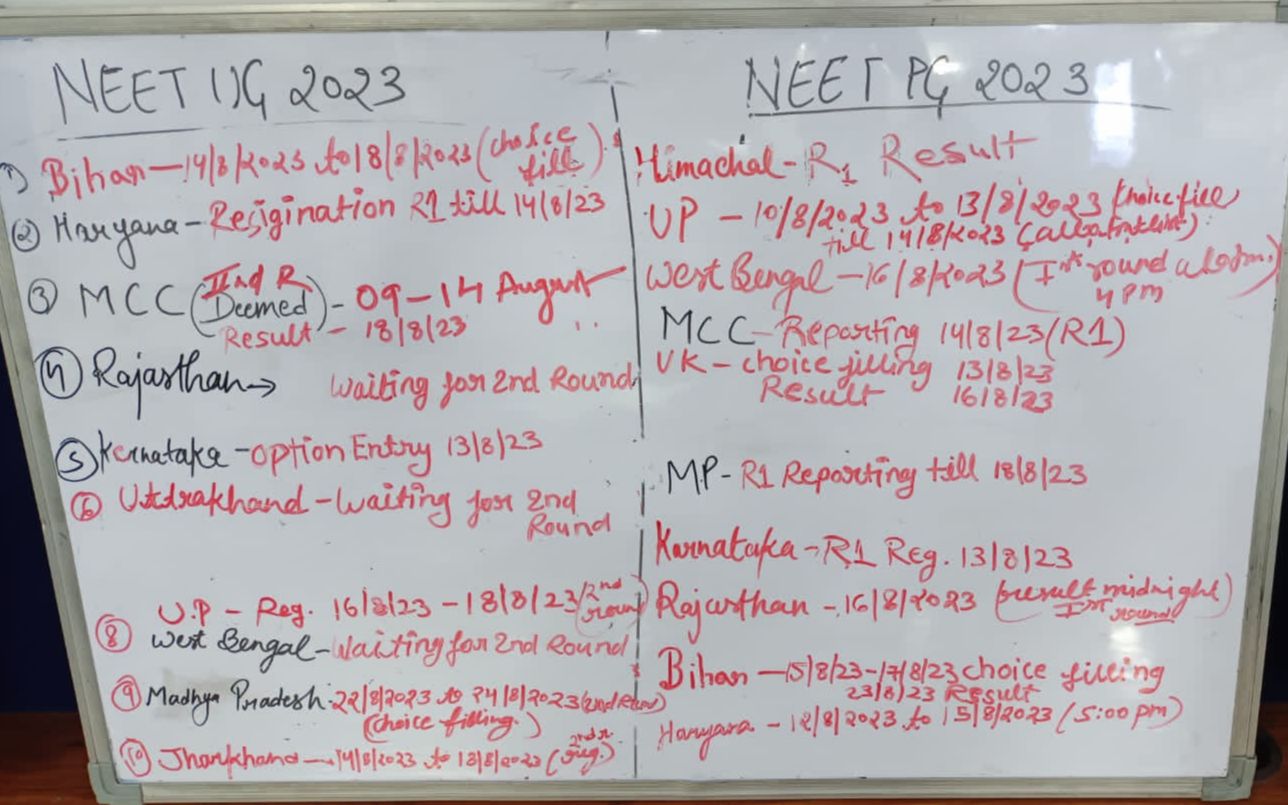 NEET UG 2023
1) Bihar - 14/8/2023 to 18/8/2023 (choice fill)
② Haryana - Resigination R1 till 14/8/23
③ MCC (IInd R Deemed) - 09-14 August
Result - 18/8/23
④ Rajasthan → waiting for 2nd Round
⑤ Karnataka - option Entry 13/8/23
⑥ Uttrakhand - Waiting for 2nd
Round
U.P - Reg. 16/8/23 - 18/8/23 (2nd round)
⑧ West Bengal - Waiting for 2nd Round
⑨ Madhya Pradesh - 22/8/2023 to 24/8/2023 (2nd Round)
(choice filling.)
⑩ Jharkhand - 14/8/2023 to 18/8/2023 (2nd r. reg.)
NEET PG 2023
Himachal - R1 Result
UP - 10/8/2023 to 13/8/2023 (choice fill)
till 14/8/2023
West Bengal - 16/8/2023 (Ist round
4 pm
MCC - Reporting 14/8/23 (R1)
UK - choice filling 13/8/23
Result 16/8/23
MP - R1 Reporting till 18/8/23
Karnataka - R1 Reg. 13/8/23
Rajasthan - 16/8/2023 (result midnight Ist round)
Bihar - 15/8/23 - 17/8/23 choice filling
23/8/23 Result
Haryana - 12/8/2023 to 15/8/2023 (5:00 pm)